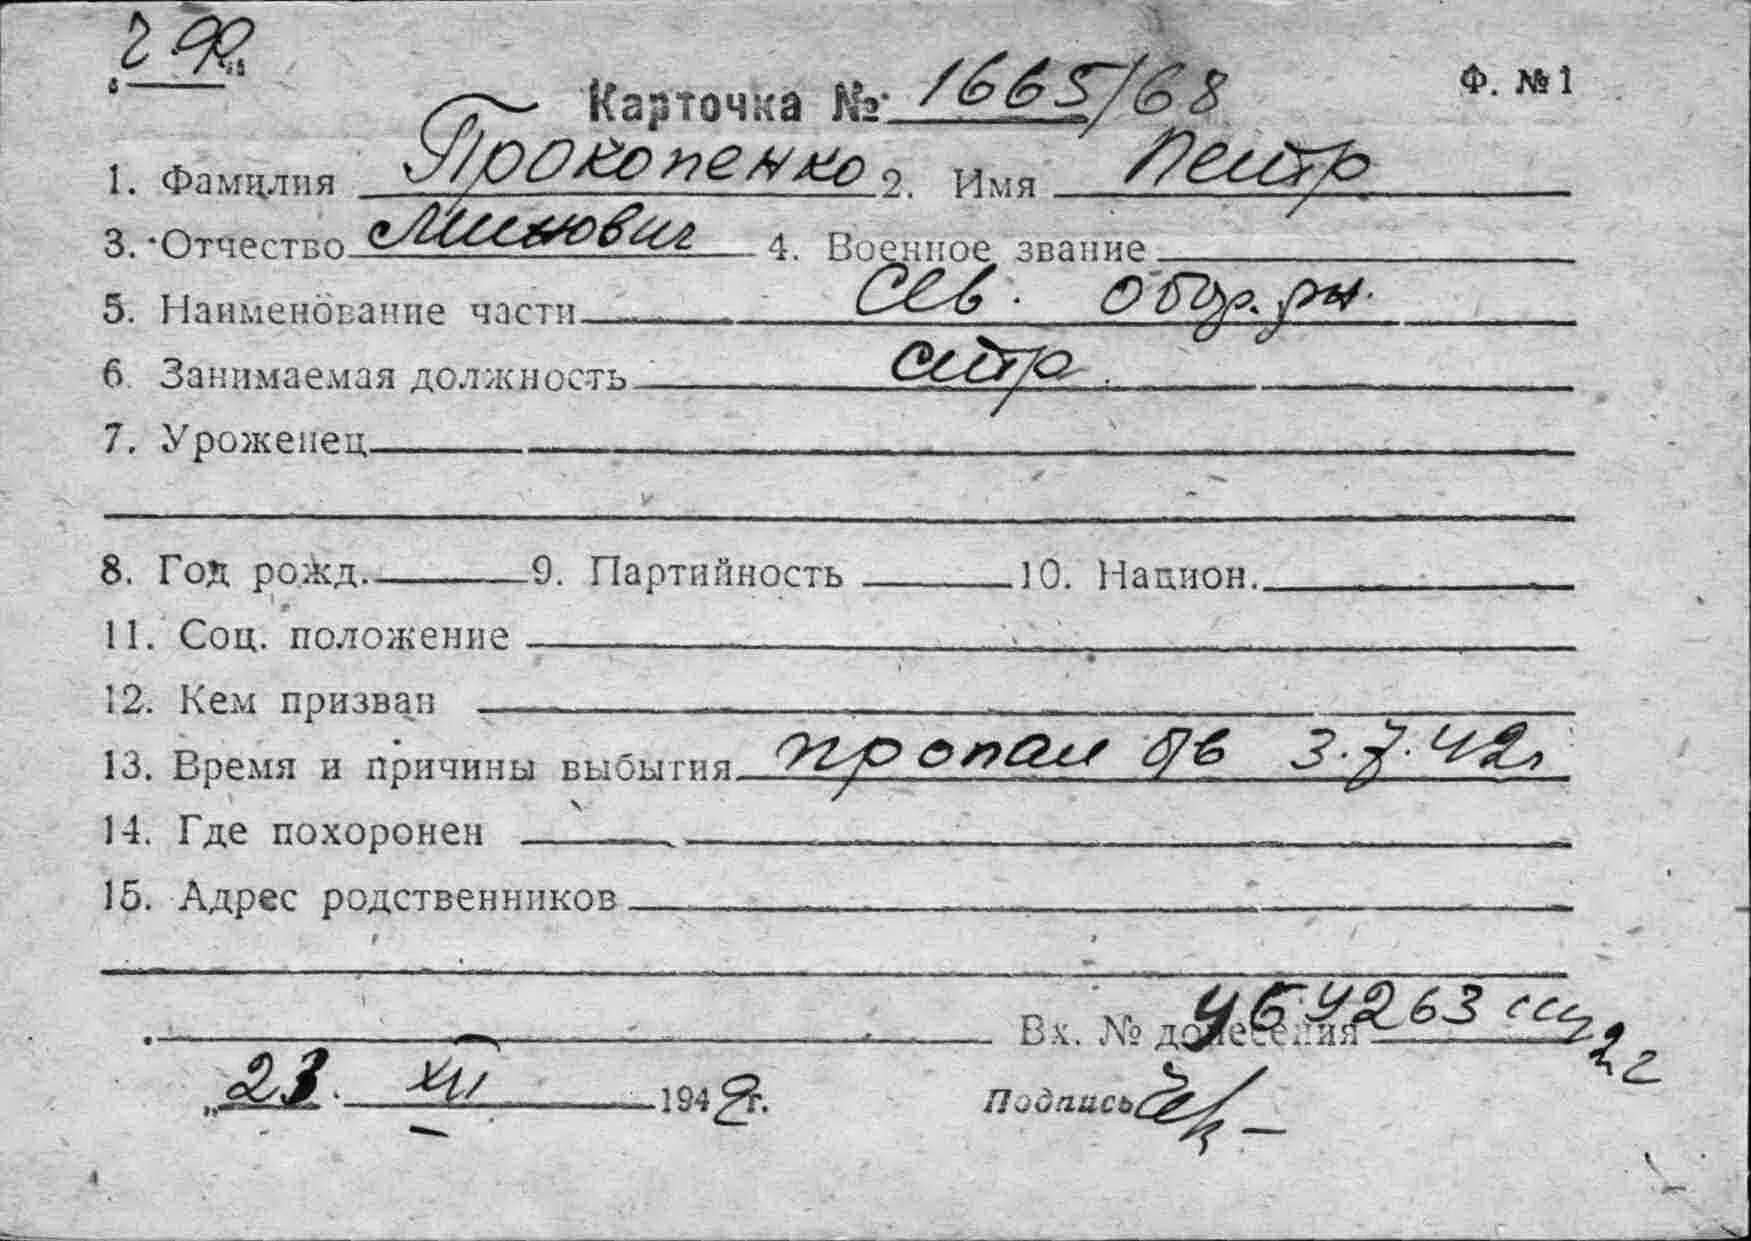 Ф. №1
Карточка № 1665/68
1. Фамилия Прокопенко 2. Имя Петр
3. Отчество Минович 4. Военное звание
5. Наименование части Сев. обор. рн.
6. Занимаемая должность стр.
7. Уроженец
8. Год рожд. 9. Партийность 10. Национ.
11. Соц. положение
12. Кем призван
13. Время и причины выбытия пропал б/в 3.7.42г
14. Где похоронен
15. Адрес родственников
Вх. № донесения
„23. XII 1949г.
Подпись